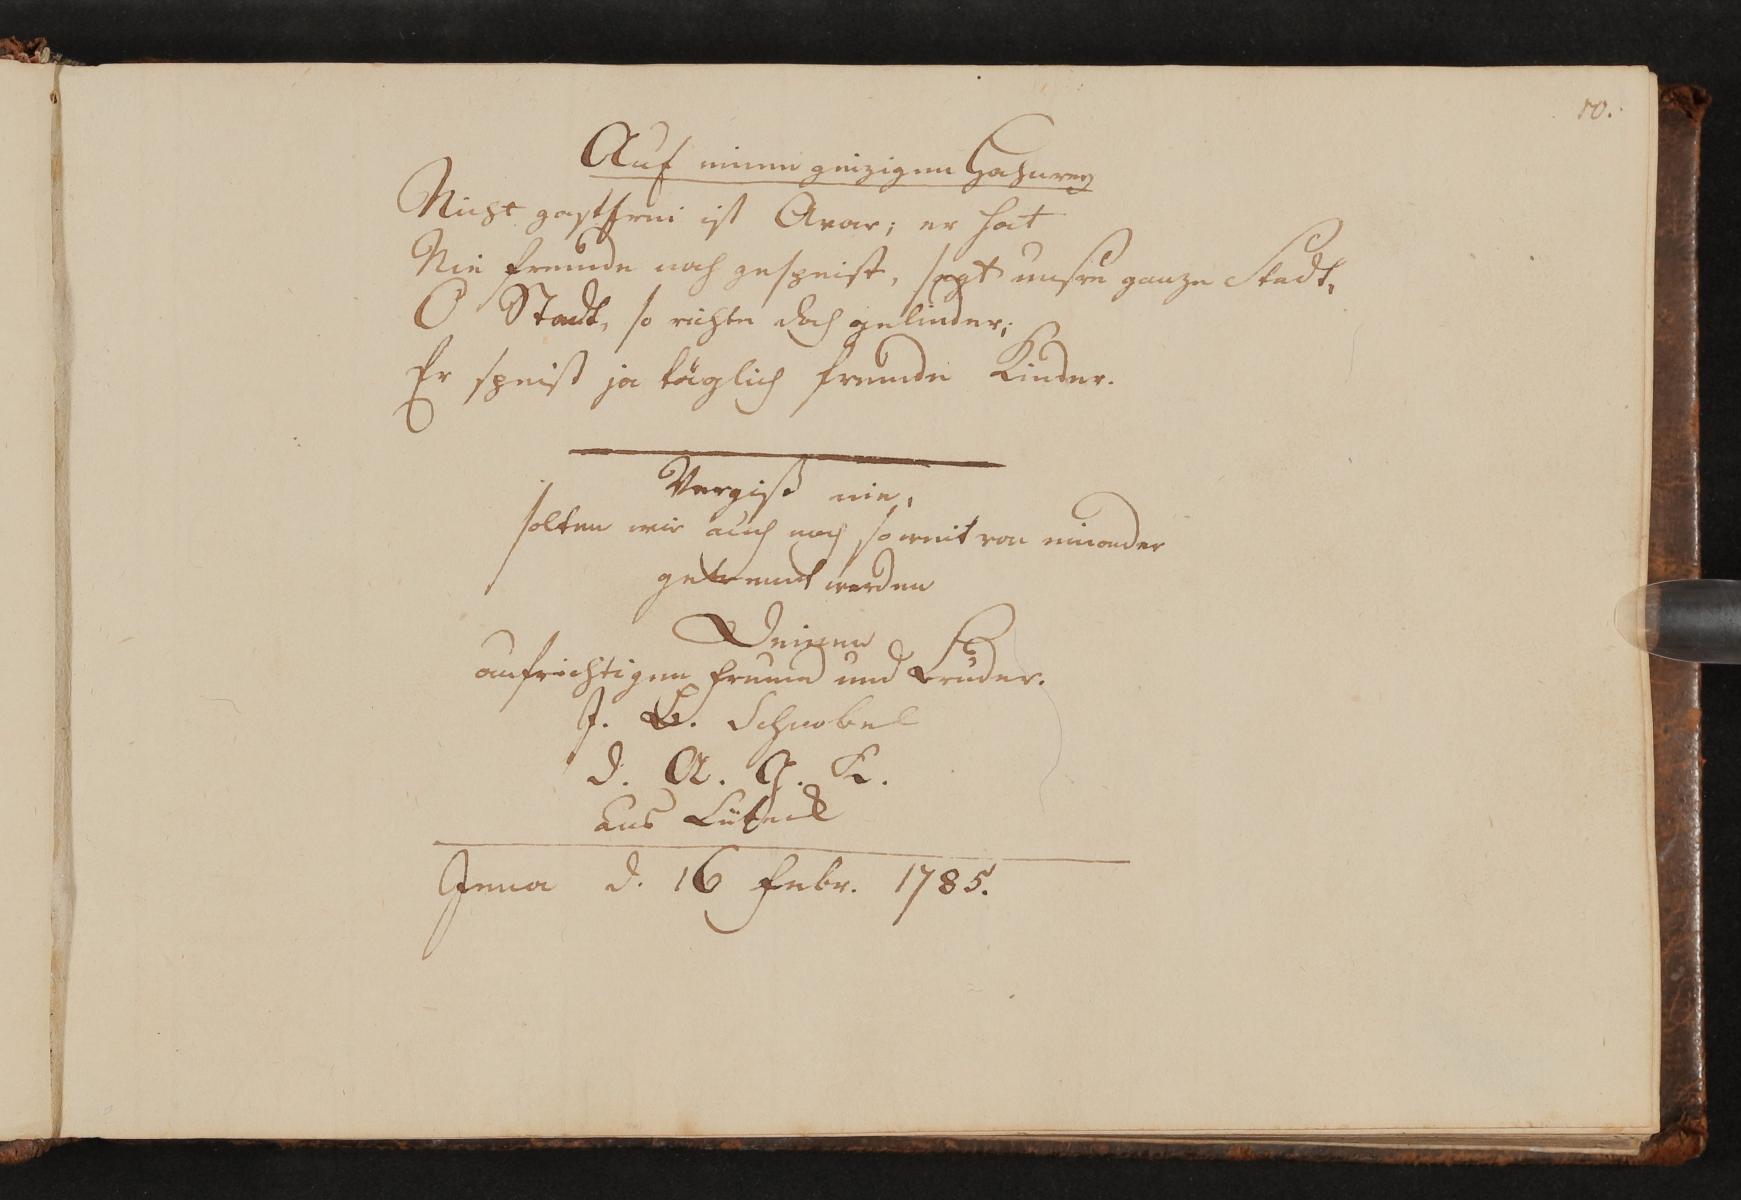 70.
Auf einen geizigen Hahnrey
Nicht gastfrei ist Avar; er hat
Nie fremde noch gespeist, sagt unsre ganze Stadt,
O Stadt, so richte doch gelinder;
Er speist ja täglich fremde Kinder.
Vergiß nie,
solten wir auch noch so weit von einander
getrennt werden
Deinen
aufrichtigen Freund und Bruder.
J. B. Schnobel
d. A. G. K.
aus Lübeck
Jena d. 16 Febr. 1785.